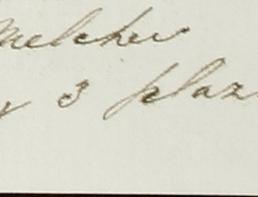 Melcher
3 plaz